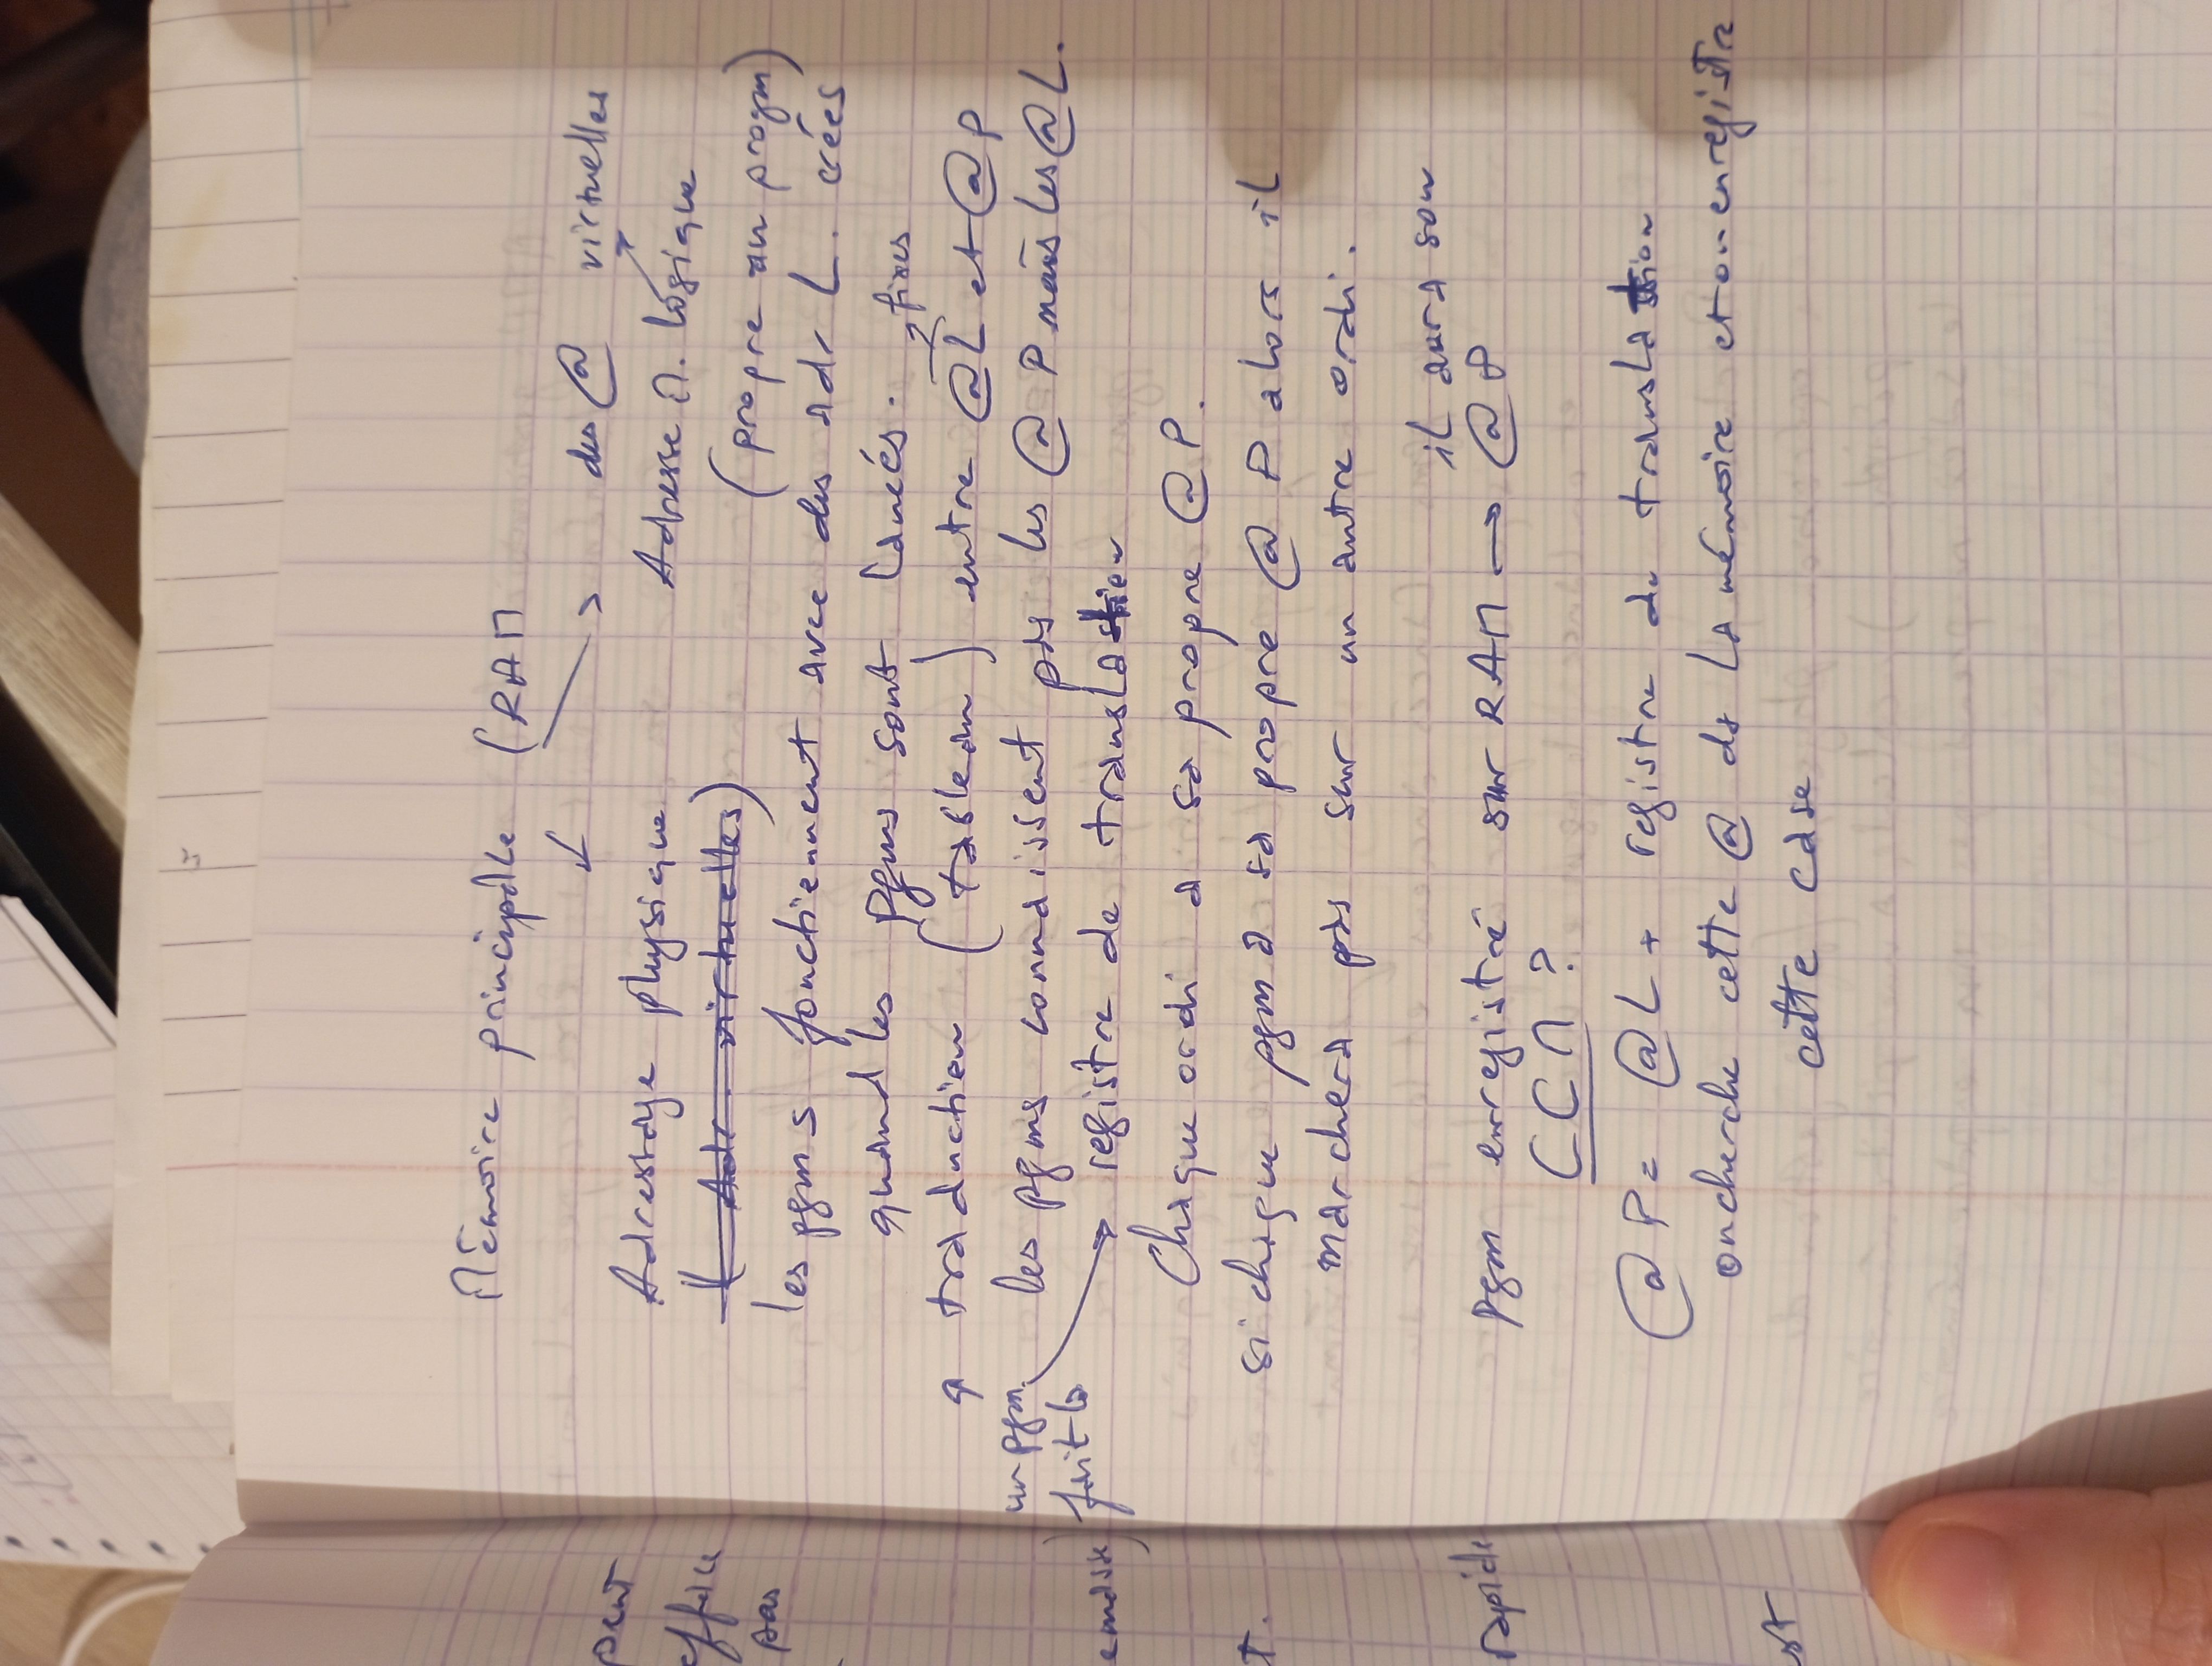 peut
effice
pas
emasse)
t.
rapide
st
Mémoire principale (RAM
des @ virtuelles
Adressage physique
Adresse M. logique
( Adr. virtuelles)
(propre au progm)
les pgms fonctiennent avec des adr L. crées
quand les pgms sont lancés.
fixes
traduction (tableau) entre @L et @P
un pgm
fait la
les pgms connaissent pas les @ P mais les @ L.
registre de translation
Chaque ordi a sa propre @ P.
si chaque pgm a sa propre @ P alors il
marchera pas sur un autre ordi.
il aura son
pgm enregistré sur RAM → @ P
CCM ?
@ P = @ L + registre de translation
on cherche cette @ ds la mémoire et on enregistre
cette case